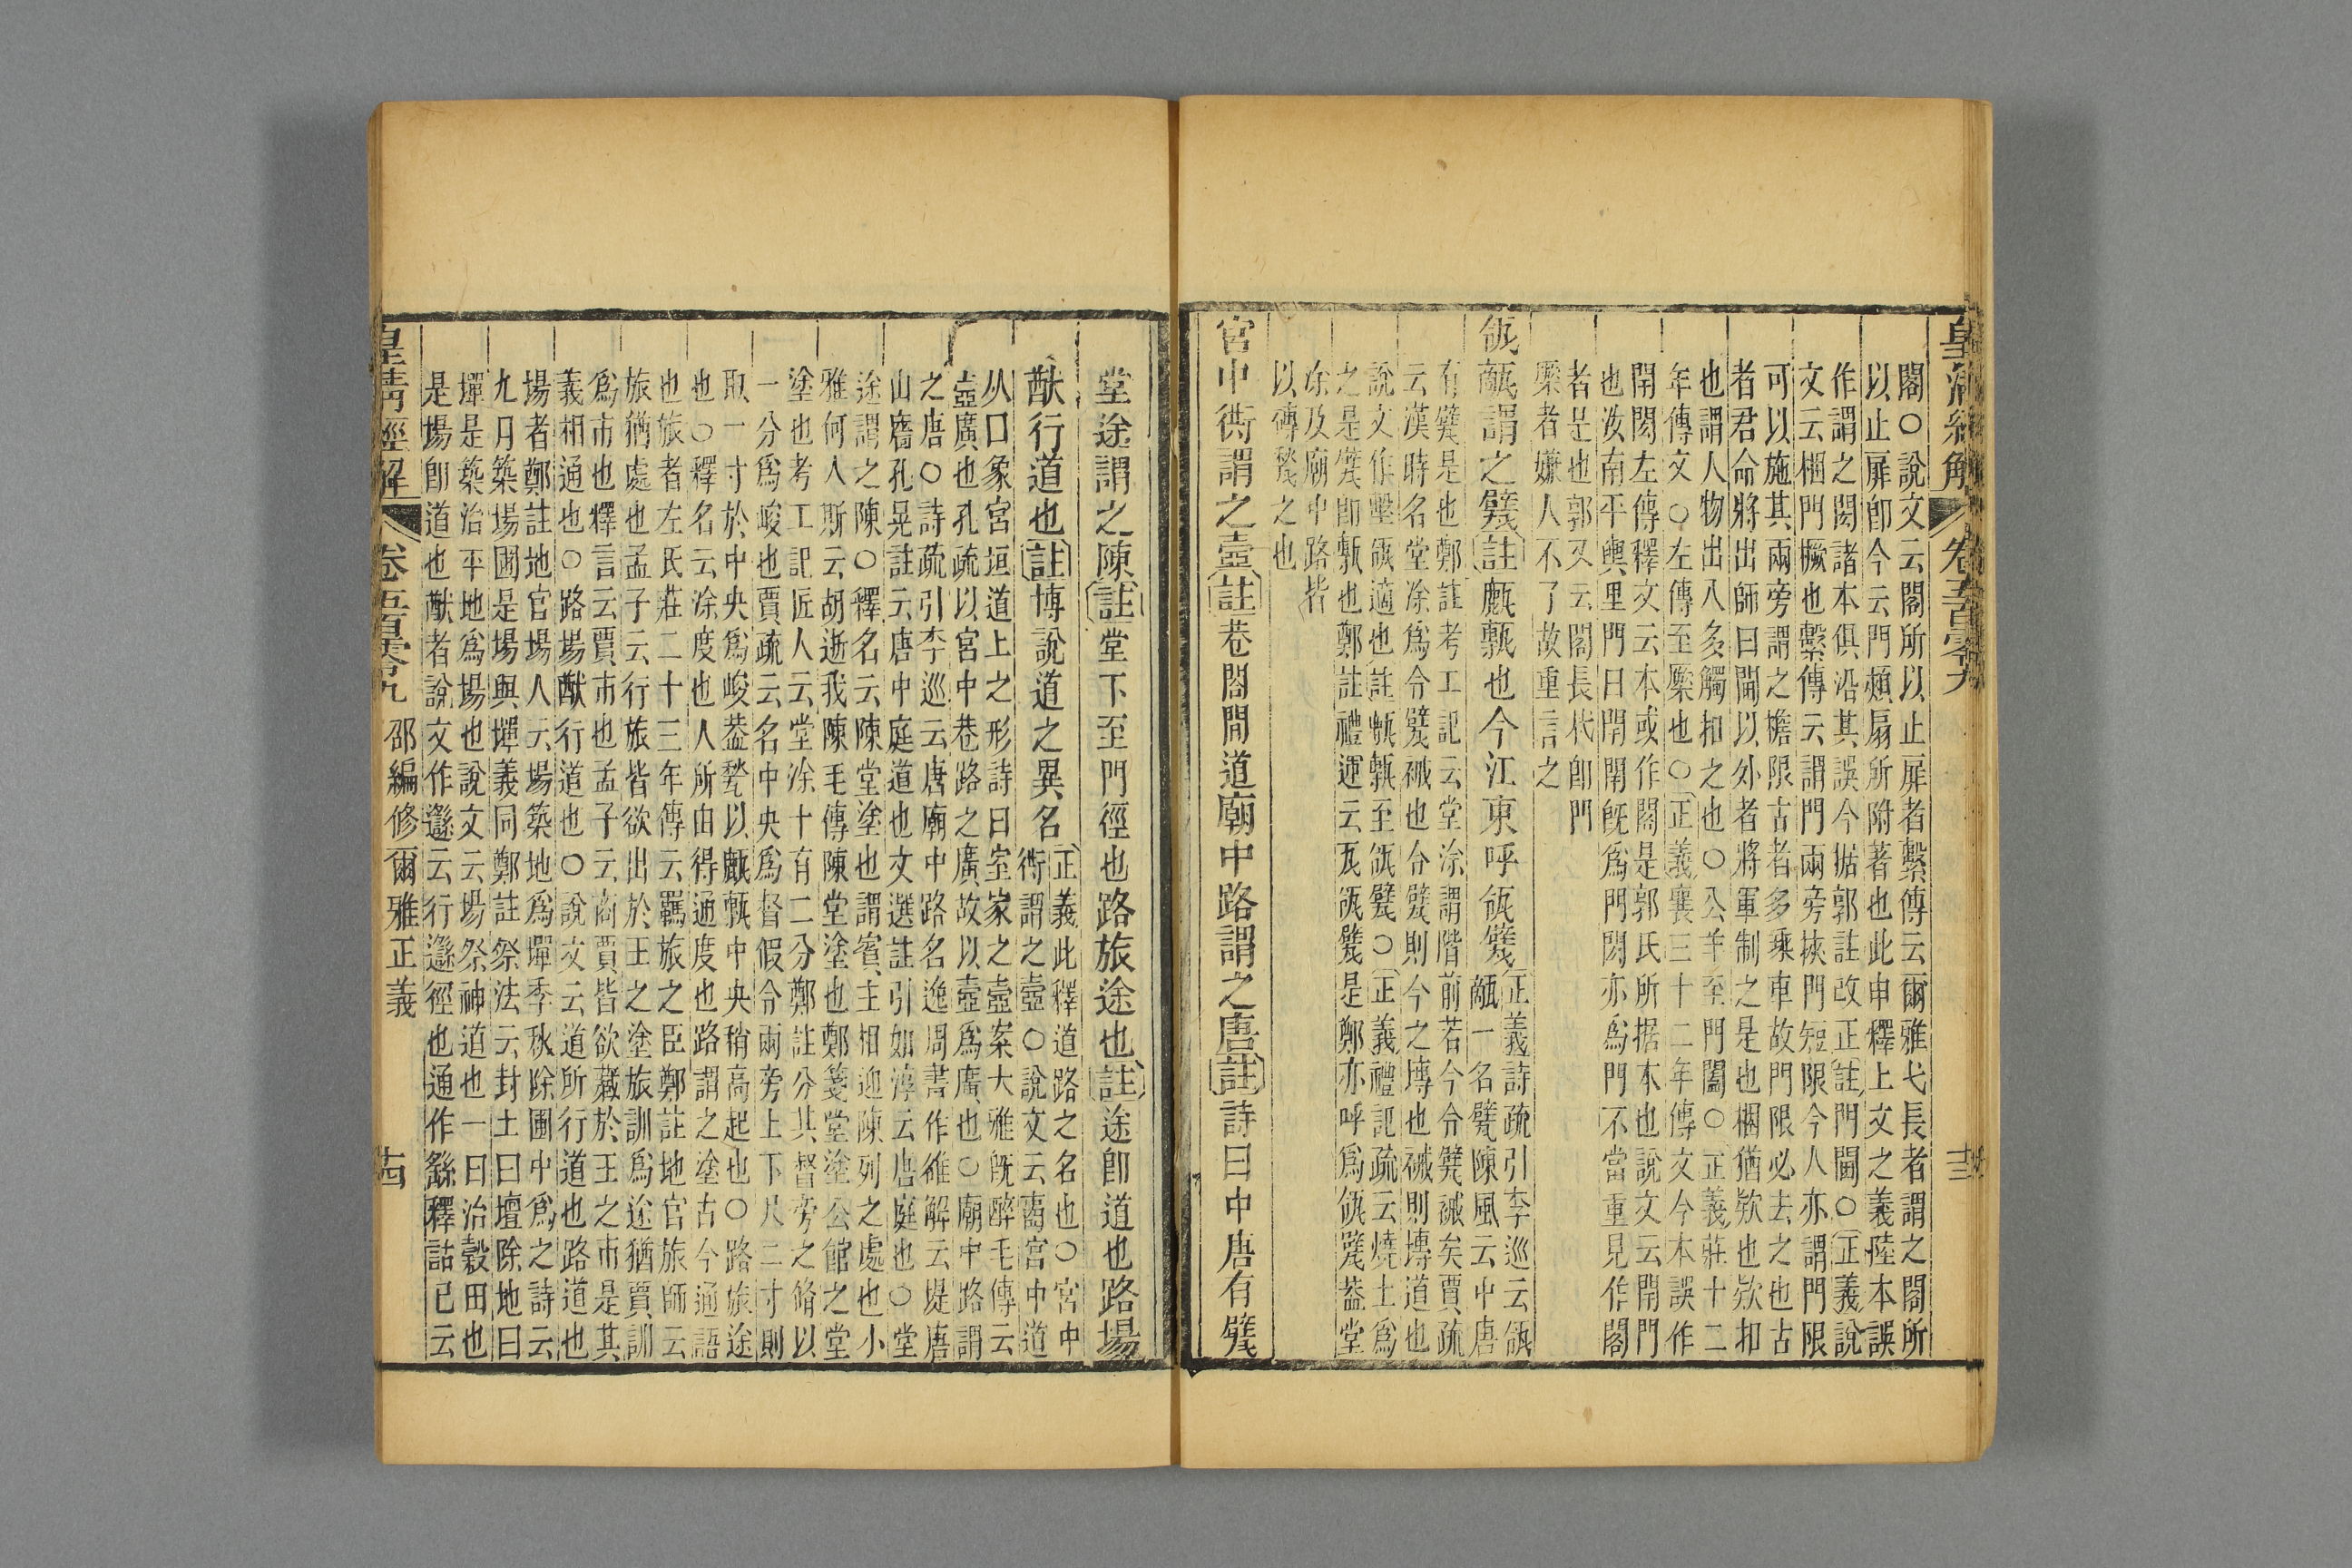 皇清經解 卷五百零九 十三
閣○說文云閣所以止扉者繫傳云爾雅弋長者謂之閣所
以止扉卽今云門頰扇所附著也此申釋上文之義陸本誤
作謂之閎諸本俱沿其誤今据郭註改正註門閫○正義說
文云梱門橛也繫傳云謂門兩旁挾門短限今人亦謂門限
可以施其兩旁謂之檐限古者多乘車故門限必去之也古
者君命將出師曰閫以外者將軍制之是也梱猶欵也欵扣
也謂人物出入多觸扣之也○公羊至門闔○正義莊十二
年傳文○左傳至橜也○正義襄三十二年傳文今本誤作
閈閎左傳釋文云本或作閣是郭氏所据本也說文云閈門
也汝南平輿里門曰閈閈旣爲門閎亦爲門不當重見作閣
者是也郭又云閣長杙卽門
橜者嫌人不了故重言之
瓴甋謂之甓註㼾甎也今江東呼瓴甓正義詩疏引李巡云瓴
甋一名甓陳風云中唐
有甓是也鄭註考工記云堂涂謂階前若今令甓裓矣賈疏
云漢時名堂涂爲令甓裓也令甓則今之塼也裓則塼道也
說文作墼瓴適也註㼾甎至瓴甓○正義禮記疏云燒土爲
之是甓卽甎也鄭註禮運云瓦瓴甓是鄭亦呼爲瓴甓葢堂
涂及廟中路皆
以磚甃之也
宮中衖謂之壼註巷閤閒道廟中路謂之唐註詩曰中唐有甓
堂途謂之陳註堂下至門徑也路旅途也註途卽道也路場
猷行道也註博說道之異名正義此釋道路之名也○宮中
衖謂之壼○說文云壼宮中道
从囗象宮垣道上之形詩曰室家之壼案大雅旣醉毛傳云
壼廣也孔疏以宮中巷路之廣故以壼爲廣也○廟中路謂
之唐○詩疏引李巡云唐廟中路名逸周書作雒解云堤唐
山廧孔晁註云唐中庭道也文選註引如淳云唐庭也○堂
途謂之陳○釋名云陳堂塗也謂賓主相迎陳列之處也小
雅何人斯云胡逝我陳毛傳陳堂塗也鄭箋堂塗公館之堂
塗也考工記匠人云堂涂十有二分鄭註分其督旁之脩以
一分爲峻也賈疏云名中央爲督假令兩旁上下尺二寸則
取一寸於中央爲峻葢甃以甋甎中央稍高起也○路旅途
也○釋名云涂度也人所由得通度也路謂之塗古今通語
也旅者左氏莊二十三年傳云羈旅之臣鄭註地官旅師云
旅猶處也孟子云行旅皆欲出於王之塗旅訓爲途猶賈訓
爲市也釋言云賈市也孟子云商賈皆欲藏於王之市是其
義相通也○路場猷行道也○說文云道所行道也路道也
場者鄭註地官場人云場築地爲墠季秋除圃中爲之詩云
九月築場圃是場與墠義同鄭註祭法云封土曰壇除地曰
墠是築治平地爲場也說文云場祭神道也一曰治穀田也
是場卽道也猷者說文作邎云行邎徑也通作繇釋詁已云
皇清經解 卷五百零九 邵編修爾雅正義 十四